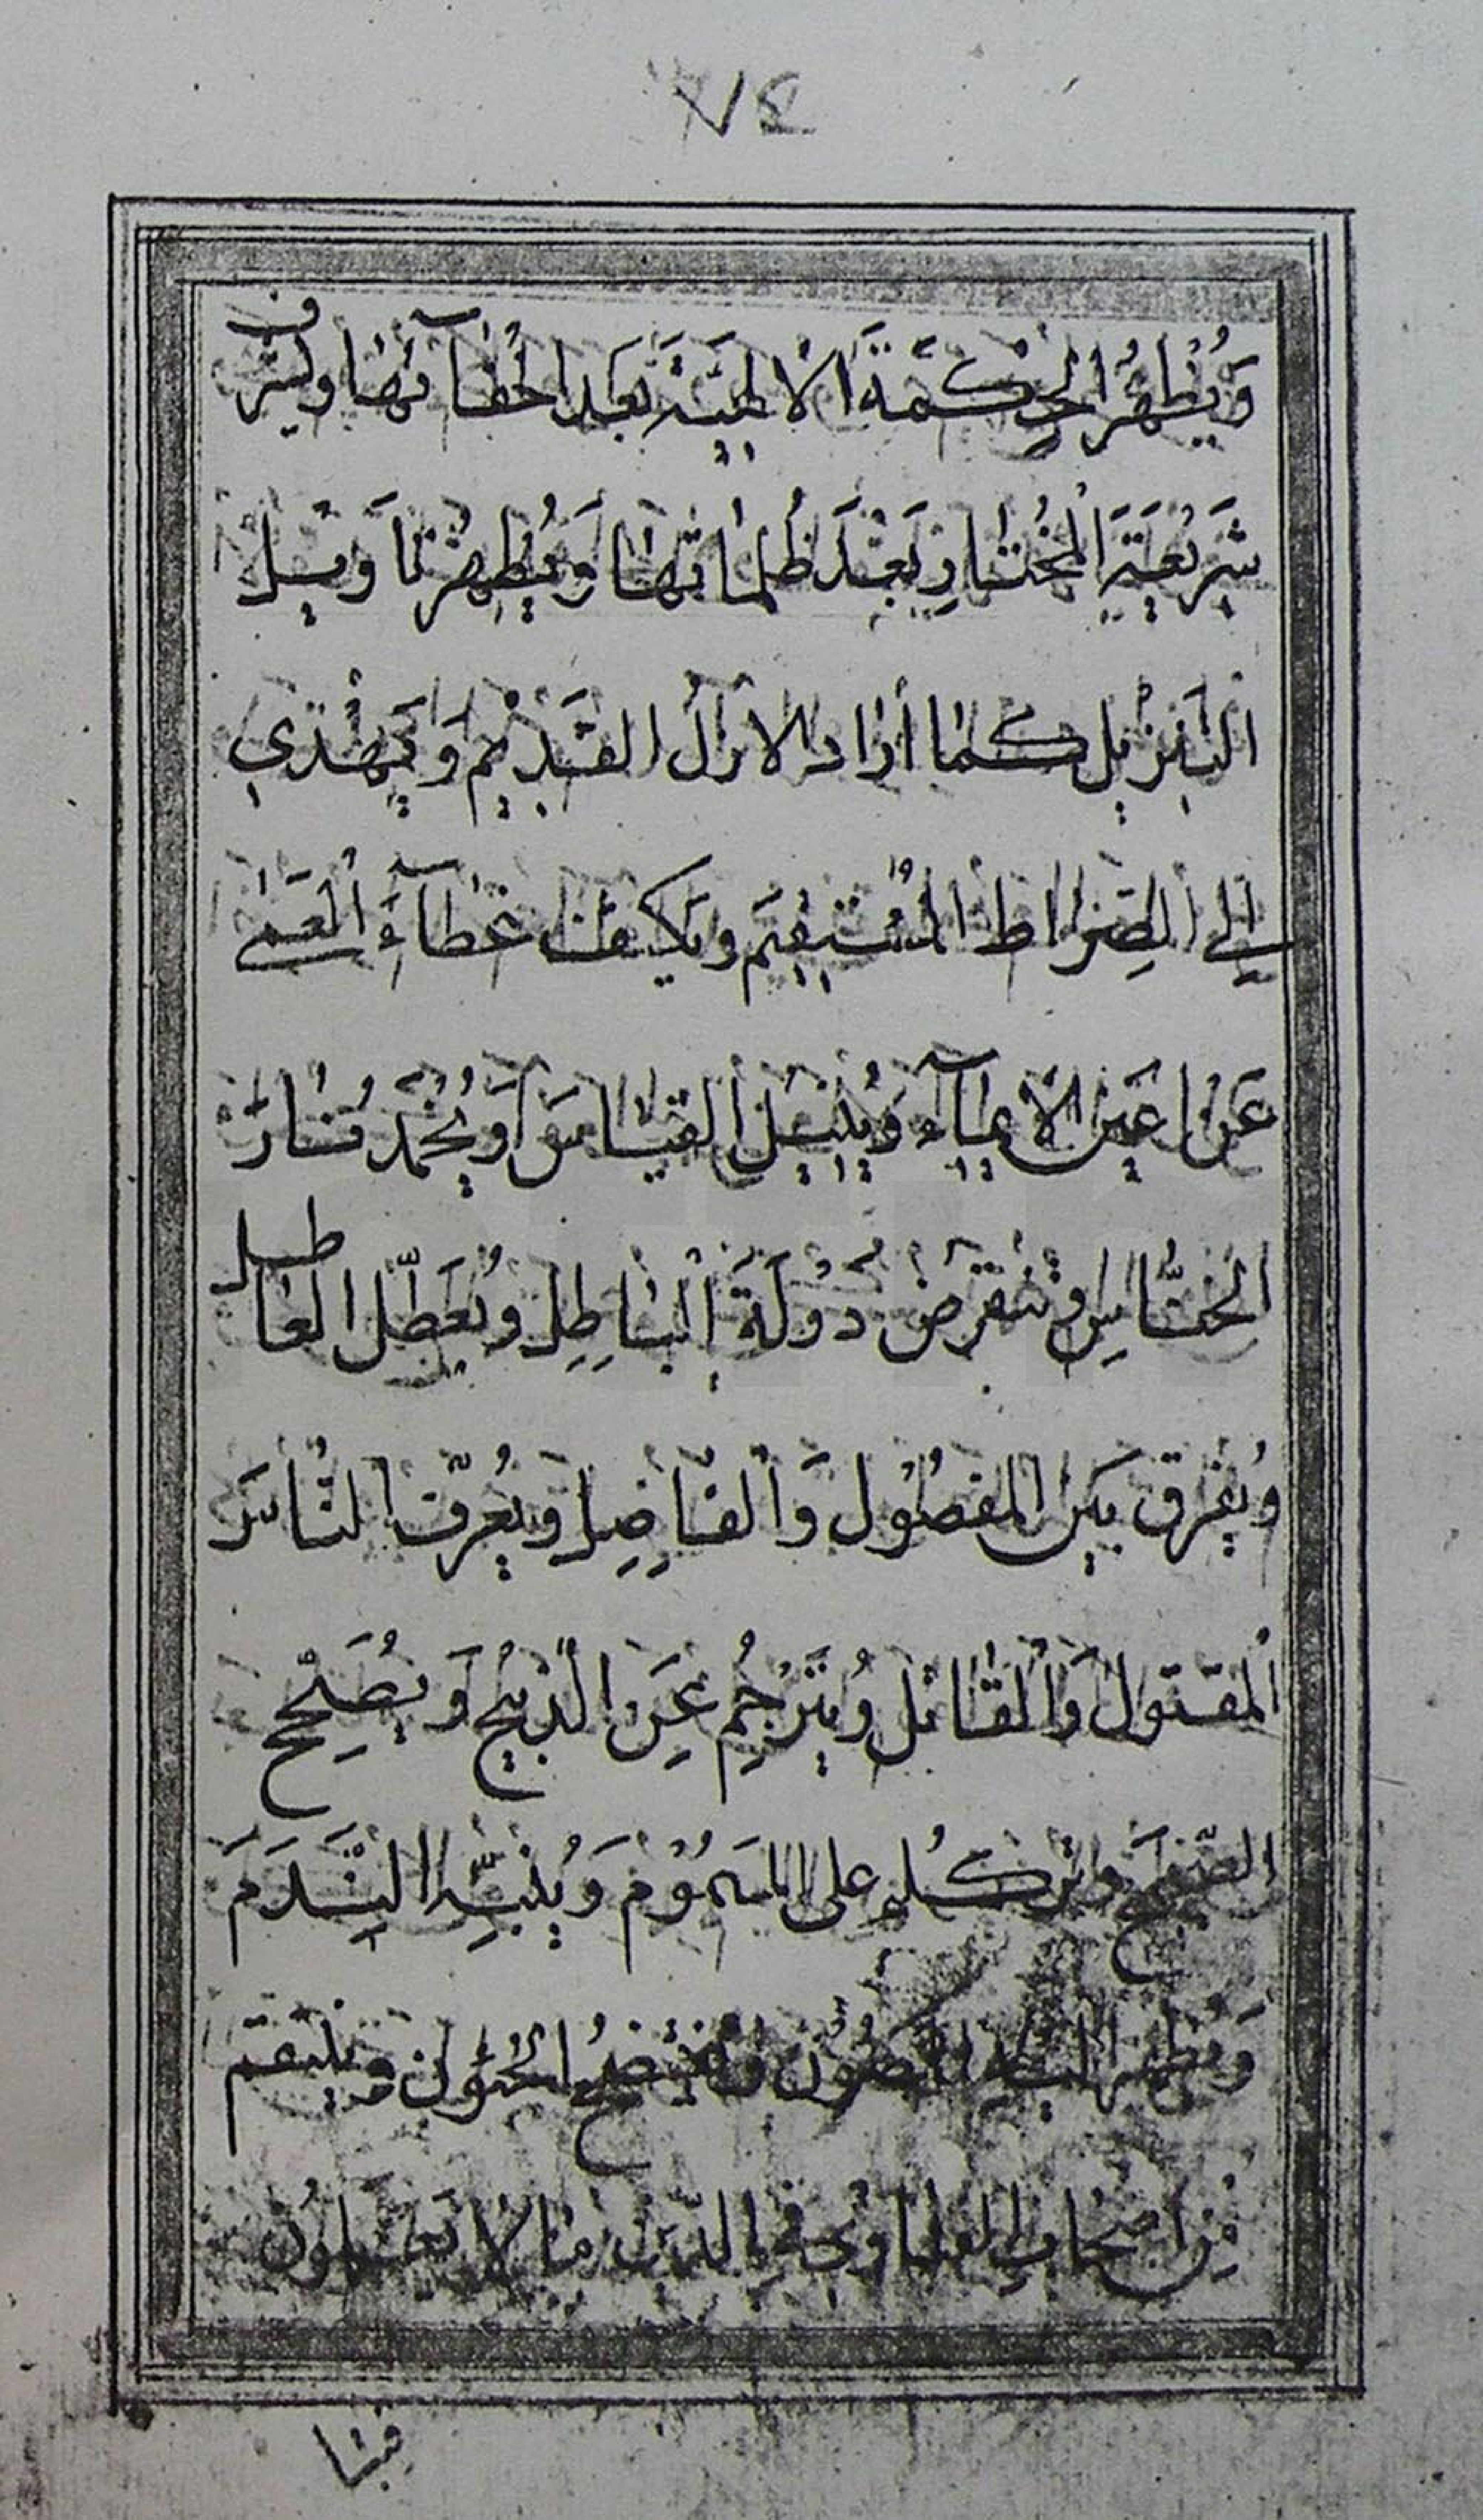 ٧٤
وَيُظْهِرُ الْحِكْمَةَ الْالٰهِيَّةَ بَعْدَ اخْفَآئهَا ويشرف
شَرِيْعَةِ الْمُخْتَارِ بَعْدَ ظُلُمَاتِهَا وَيُظْهِرُ تَاَويل
التَنْزيل كمٰا أرٰاد الازل القَديْم وَيَهْدي
إلى الصِرٰاط المُسْتَقِيمَ ويكشف غطآءَ الْعَمٰى
عَن اعيَن الْاعيآء وَيُبْطِلُ القيٰاسَ وَيُخْمدُ نٰارَ
الْخنّاسِ وتنقرض دَوْلَةَ الْبٰاطِلِ ويُعَطّل العٰاطل
ويُفْرق بَين المفضُوْل وَالفٰاضِل ويُعرّف النٰاسَ
الْمقتول وَالْقٰاتل وُيتَرْجِمُ عَن الْذبيْحْ وَيُصَحِّح
الصّحيحَ على المسَمُوْم وَيُنَبِّه النَدَمَ
وَيُظهر وينتقم
مِن اصحٰابِ الدّين مٰا لا يَعْلمُونْ